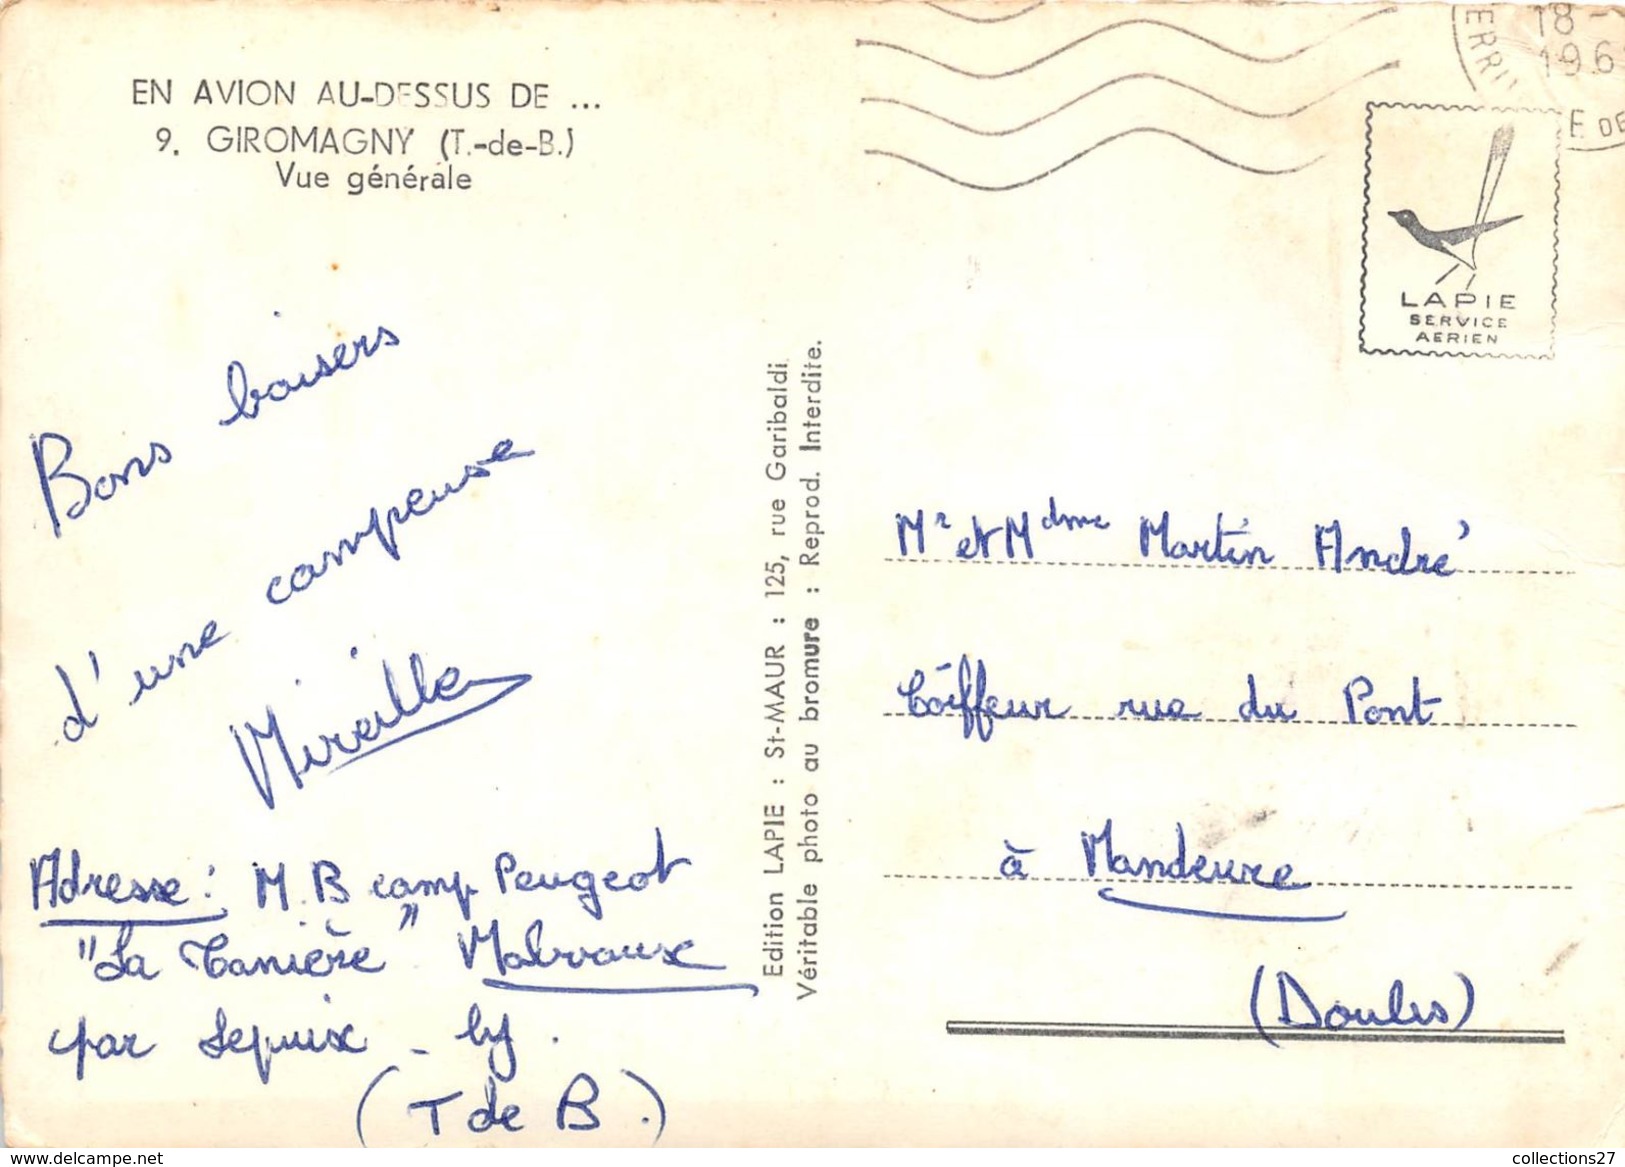 EN AVION AU-DESSUS DE ...
9. GIROMAGNY (T.-de-B.)
Vue générale
Bons baisers
d'une campeuse
Mireille
Adresse : M. B camp Peugeot
"La Tanière" Malvaux
par Lepuix - Gy.
(T de B.)
Edition LAPIE : St-MAUR : 125, rue Garibaldi
Véritable photo au bromure : Reprod. Interdite.
18 -
196
E DE
LAPIE
SERVICE
AERIEN
Mr et Mdme Martin André
Coiffeur rue du Pont
à Mandeure
(Doubs)
www.delcampe.net
collections27